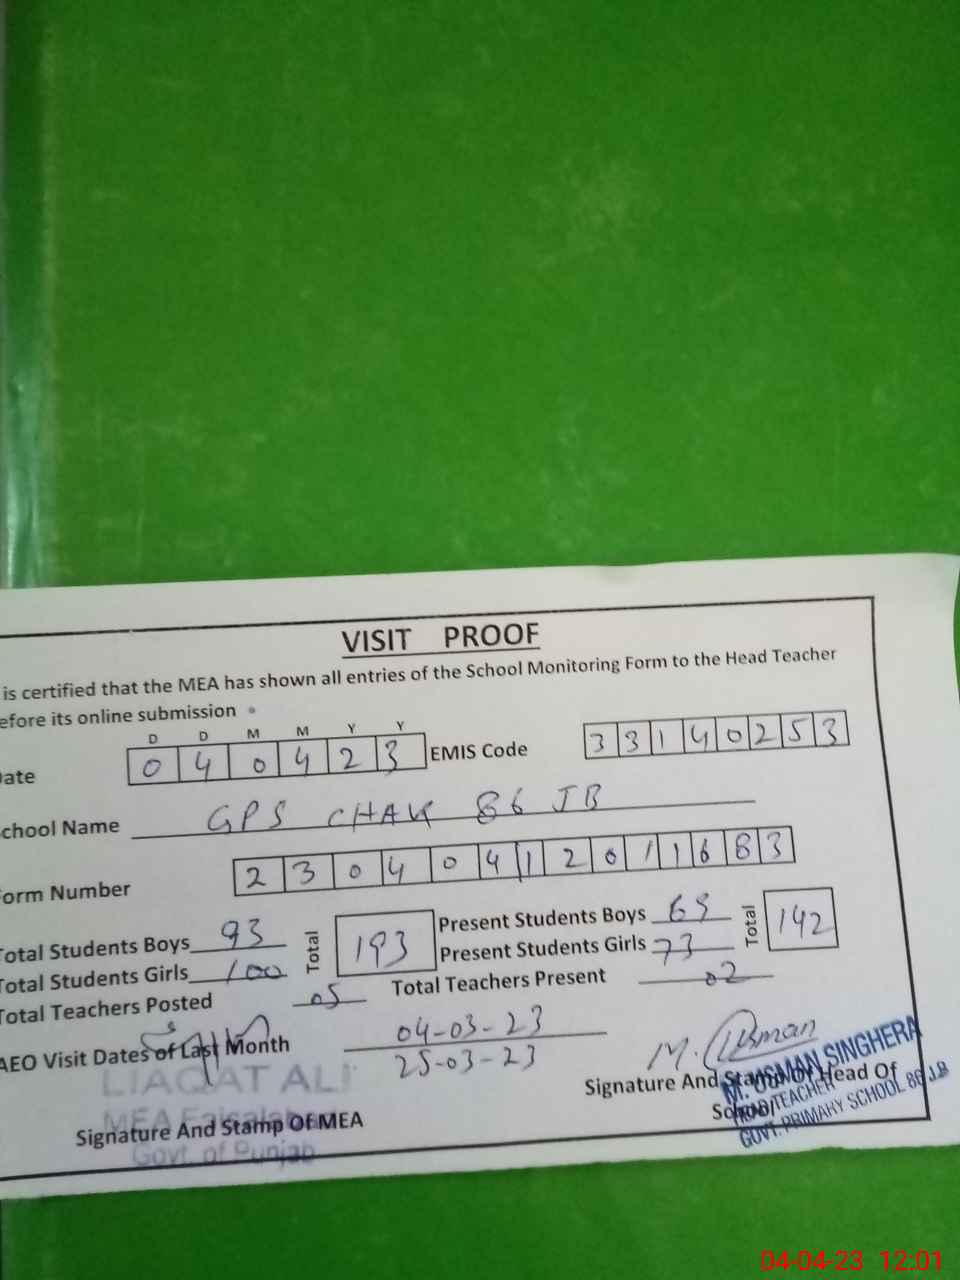 VISIT PROOF
is certified that the MEA has shown all entries of the School Monitoring Form to the Head Teacher
efore its online submission
D D M M Y Y
ate 0 4 0 4 2 3 EMIS Code 3 3 1 4 0 2 5 3
chool Name GPS CHAK 86 JB
orm Number 2 3 0 4 0 4 1 2 0 1 1 6 8 3
otal Students Boys 93 Total 193 Present Students Boys 69 Total 142
otal Students Girls 100 Present Students Girls 73
Total Teachers Posted 05 Total Teachers Present 02
AEO Visit Dates of Last Month 04-03-23
25-03-23
M. Usman
LIAQAT ALI
MEA Faisalabad
Govt. of Punjab
Signature And Stamp Of MEA
Signature And Stamp Of Head Of
School
M. USMAN SINGHERA
HEAD TEACHER
GOVT. PRIMARY SCHOOL 86 J.B
04-04-23 12:01